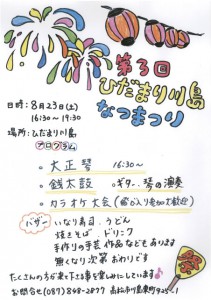 第3回
ひだまり川島
なつまつり
日時：8月23日(土)
16:30～19:30
場所：ひだまり川島
プログラム
・大正琴 16:30～
・銭太鼓 ・ギター、琴の演奏
・カラオケ大会(飛び入り参加大歓迎)
バザー
いなり寿司、うどん
焼きそば、ドリンク
手作りの手芸作品などもあります
無くなり次第おわりです
たくさんの方が来て下さる事を楽しみにしています♪
お問合せ(087)848-2877 高松市川島東町925-1